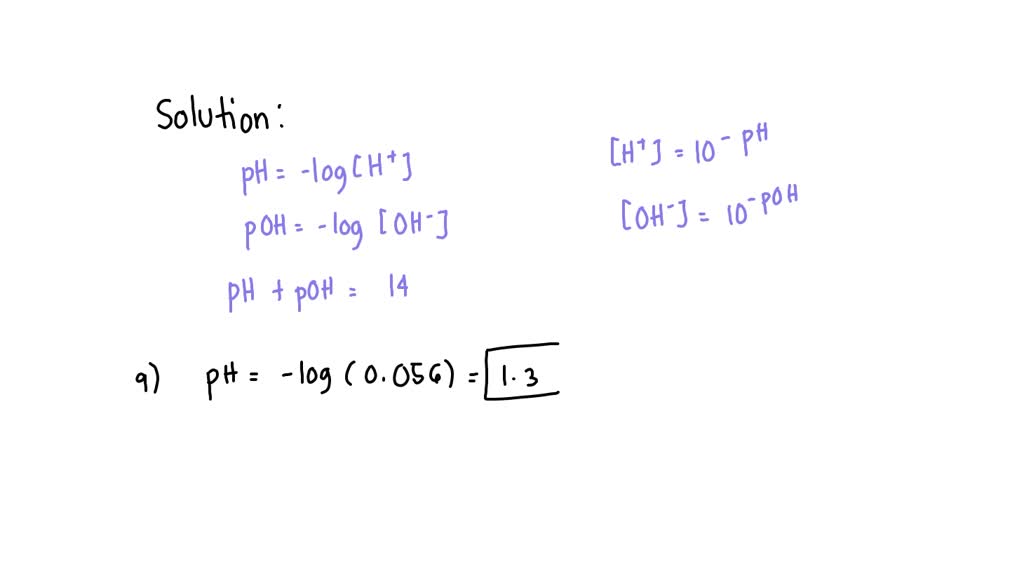 Solution:
pH = -log[H⁺]
[H⁺] = 10⁻ᵖᴴ
pOH = -log [OH⁻]
[OH⁻] = 10⁻ᵖᴼᴴ
pH + pOH = 14
a) pH = -log (0.056) = 1.3